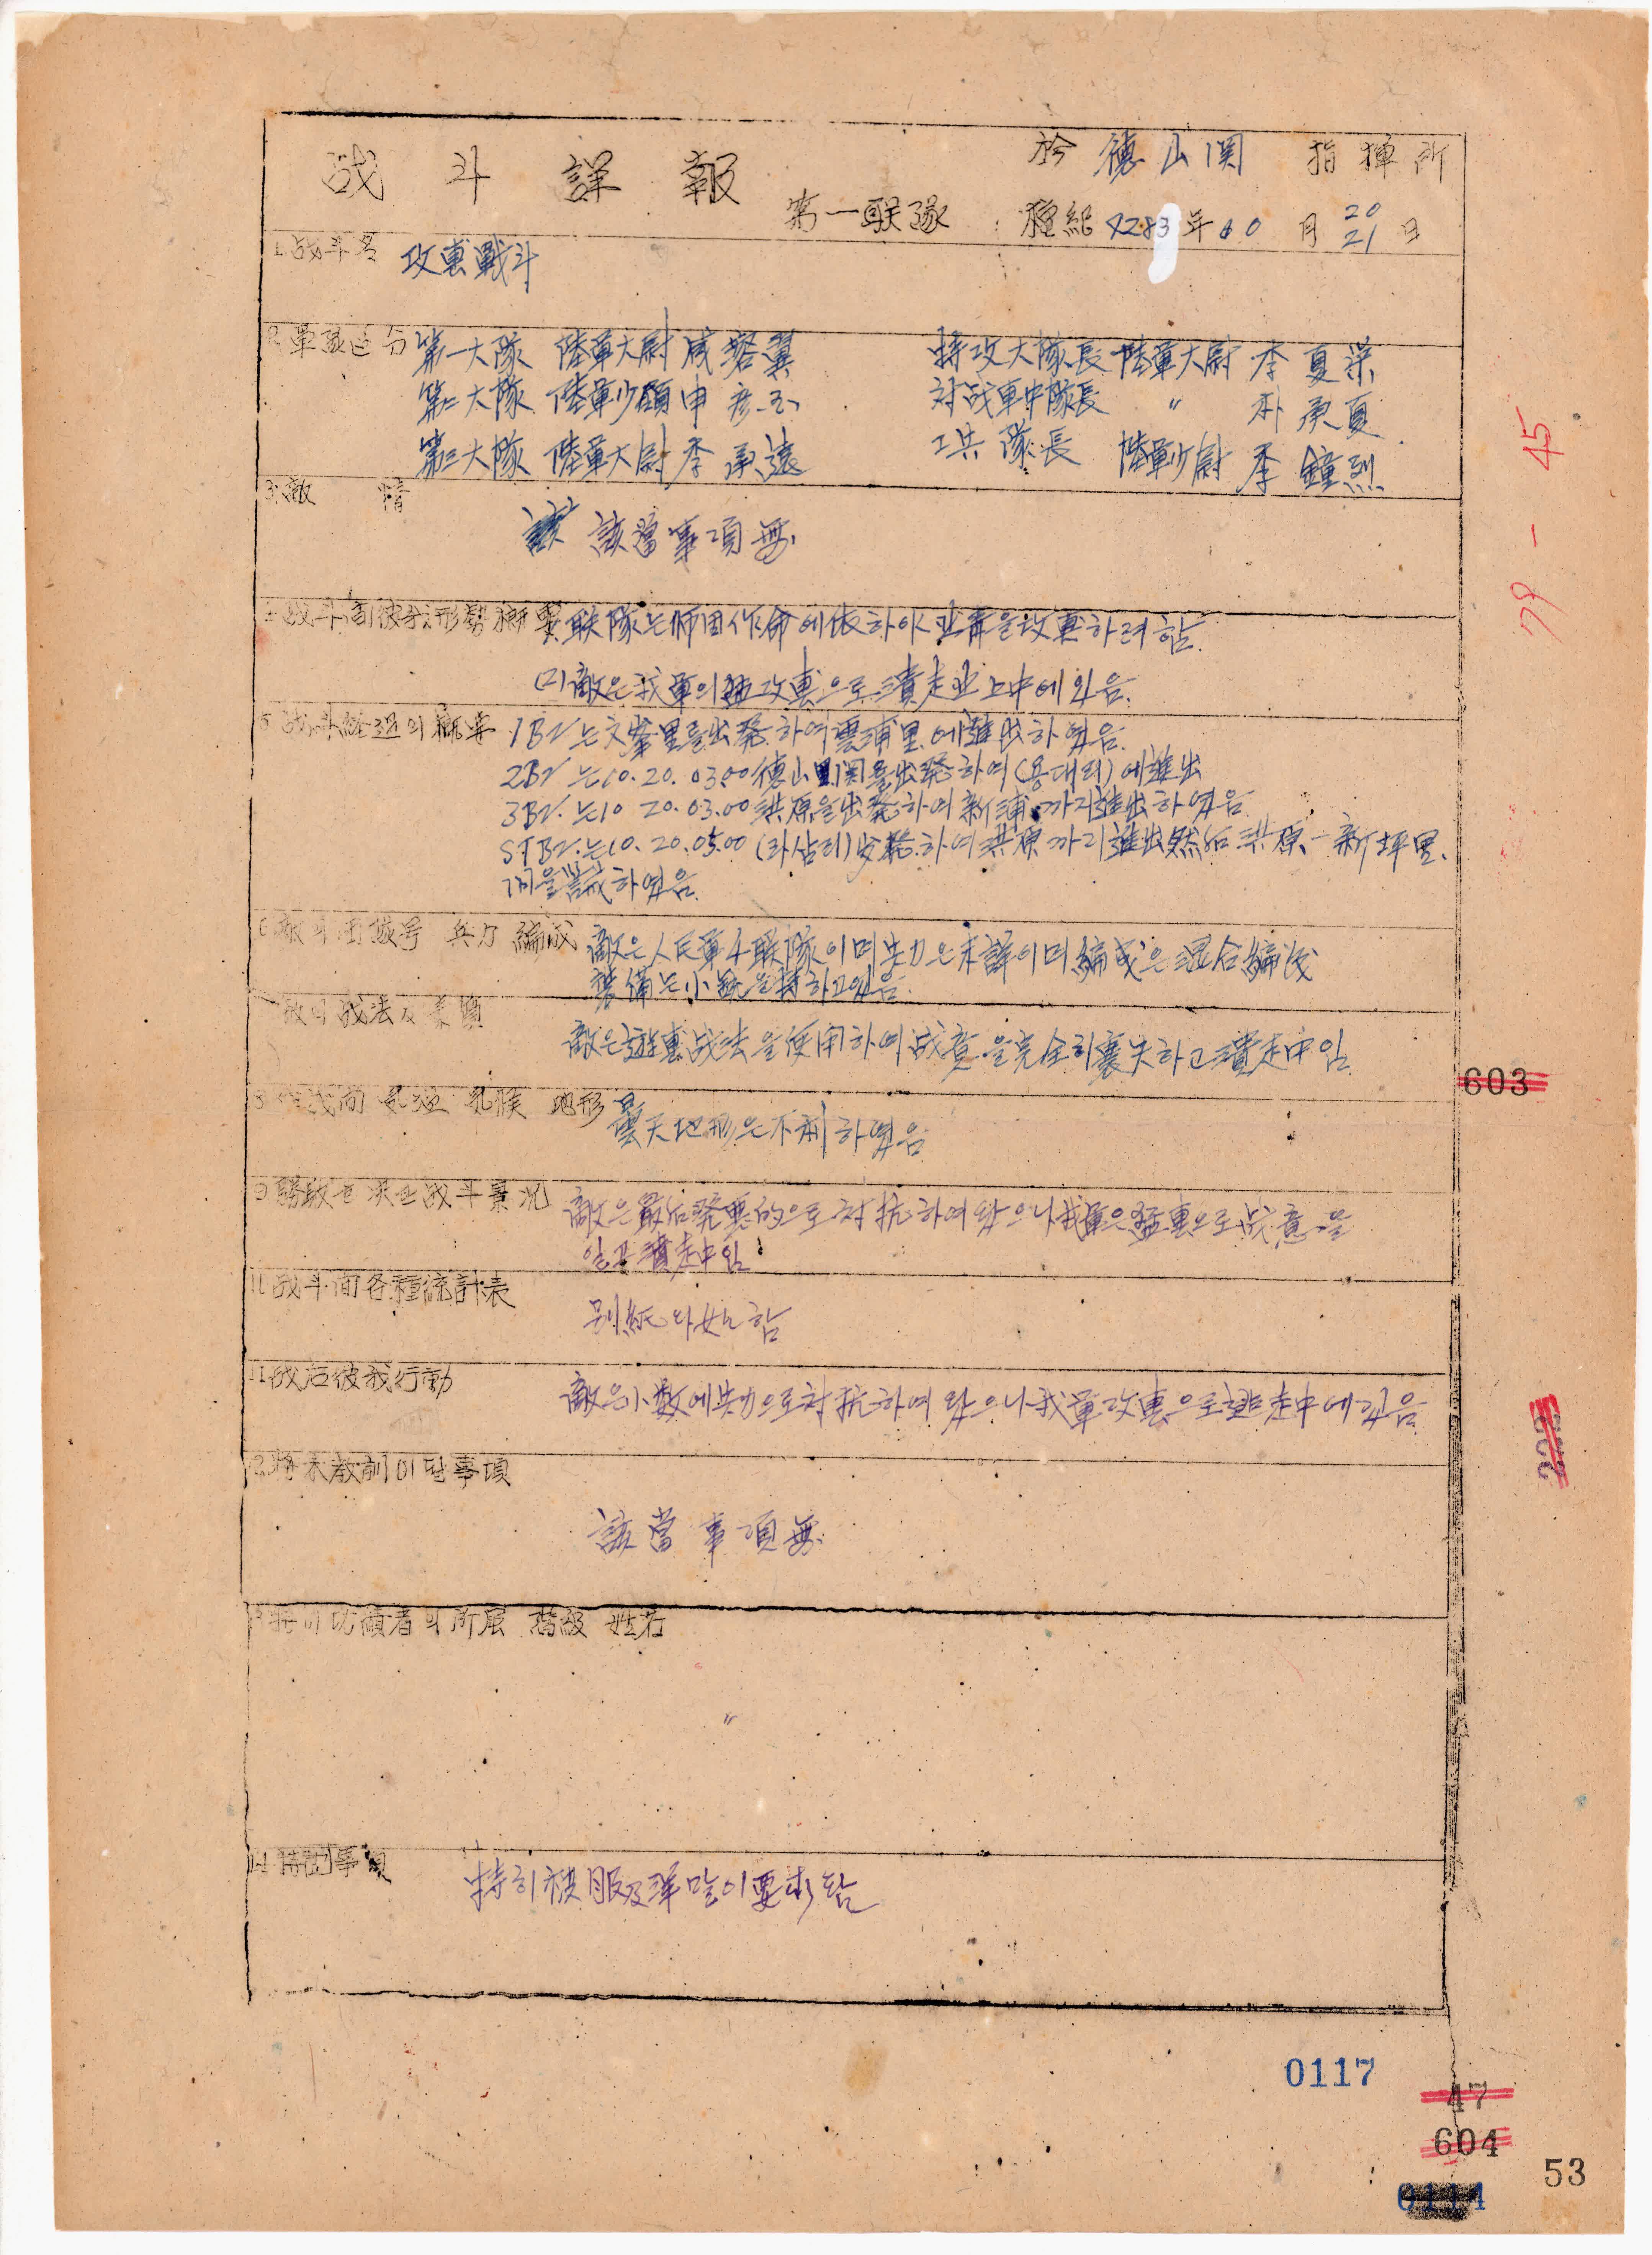 战斗詳報
於 德山関 指揮所
第一联隊 檀紀4283年10月20 21日
1.战斗名 攻撃戰斗
2.軍隊區分 第一大隊 陸軍大尉 咸 翼 特攻大隊長 陸軍大尉 李夏榮
第二大隊 陸軍少領 申彦 对战車中隊長 〃 朴承夏
第三大隊 陸軍大尉 李承遠 工兵隊長 陸軍少尉 李鐘烈
3.敵情
該當事項無.
战斗前彼我形勢槪要 联隊는師団作命에依하야 北靑을攻擊하려함.
(口)敵은我軍의猛攻擊으로潰走北上中에있음.
5 战斗経過의槪要 1Bn는文峯里를出発하여雲浦里에進出하였음.
2Bn는10.20.03.00 德山関을出発하여(용대리)에進出
3Bn.는10 20.03.00 洪原을出発하여新浦까지進出하였음.
STBn.는10.20.05.00 (라삼리)发發하여洪原까지進出然后洪原-新坪里,
間을警戒하였음.
6敵의団隊号 兵力 編成 敵은人民軍4联隊이며兵力은未詳이며編成은混合編成
裝備는小銃을持하고있음.
敵의战法及素質
敵은遊擊战法을使用하여战意을完全히喪失하고潰走中임.
8 作战間 気温 気候 地形 曇天地形은不利하였음
9勝敗을決한战斗景況 敵은最后発惡的으로对抗하여왔으나我軍은猛擊으로战意을
잃고潰走中임
11战斗間各種統計表
別紙와如함
11战后彼我行動
敵은小数에兵力으로对抗하여왔으나我軍攻擊으로逃走中에있음.
12.將来教訓이될事項
該當事項無.
13特히功績者의所屬 階級 姓名
〃
14 事項 特히被服及洋말이要求됨
79-45
603
222
0117
47
604
53
0114